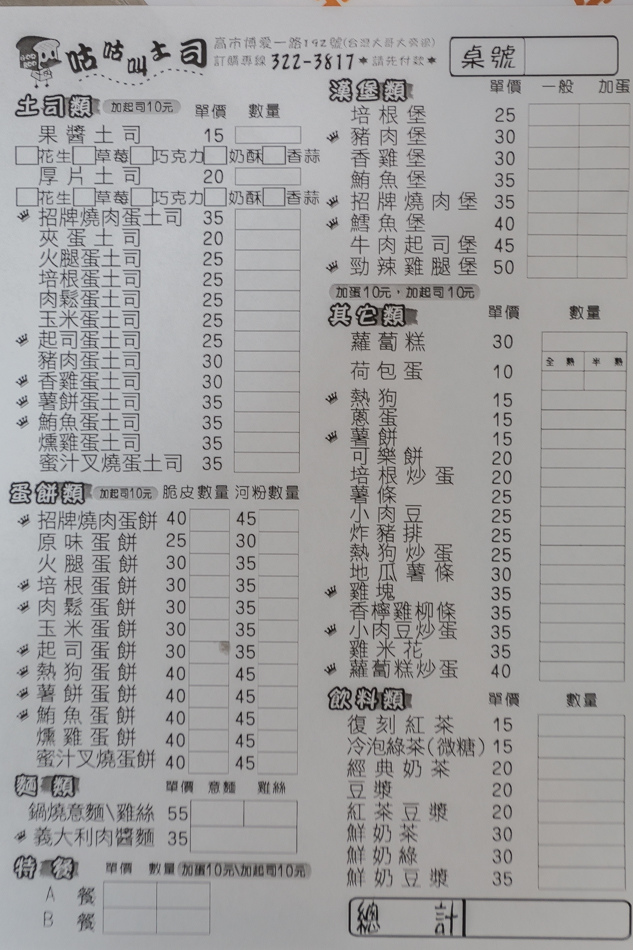 咕咕叫土司
高市博愛一路192號(台灣大哥大旁)
訂購專線 322-3817 *請先付款*
桌號
土司類 加起司10元 單價 數量
果醬土司 15
花生 草莓 巧克力 奶酥 香蒜
厚片土司 20
花生 草莓 巧克力 奶酥 香蒜
招牌燒肉蛋土司 35
夾蛋土司 20
火腿蛋土司 25
培根蛋土司 25
肉鬆蛋土司 25
玉米蛋土司 25
起司蛋土司 25
豬肉蛋土司 30
香雞蛋土司 30
薯餅蛋土司 35
鮪魚蛋土司 35
燻雞蛋土司 35
蜜汁叉燒蛋土司 35
蛋餅類 加起司10元 脆皮 數量 河粉 數量
招牌燒肉蛋餅 40 45
原味蛋餅 25 30
火腿蛋餅 30 35
培根蛋餅 30 35
肉鬆蛋餅 30 35
玉米蛋餅 30 35
起司蛋餅 30 35
熱狗蛋餅 40 45
薯餅蛋餅 40 45
鮪魚蛋餅 40 45
燻雞蛋餅 40 45
蜜汁叉燒蛋餅 40 45
麵類 單價 意麵 雞絲
鍋燒意麵\雞絲 55
義大利肉醬麵 35
特餐 單價 數量 加蛋10元\加起司10元
A 餐
B 餐
漢堡類 單價 一般 加蛋
培根堡 25
豬肉堡 30
香雞堡 30
鮪魚堡 35
招牌燒肉堡 35
鱈魚堡 40
牛肉起司堡 45
勁辣雞腿堡 50
加蛋10元,加起司10元
其它類 單價 數量
蘿蔔糕 30
荷包蛋 10 全熟 半熟
熱狗 15
蔥蛋 15
薯餅 15
可樂餅 20
培根炒蛋 20
薯條 25
小肉豆 25
炸豬排 25
熱狗炒蛋 25
地瓜薯條 30
雞塊 35
香檸雞柳條 35
小肉豆炒蛋 35
雞米花 35
蘿蔔糕炒蛋 40
飲料類 單價 數量
復刻紅茶 15
冷泡綠茶(微糖) 15
經典奶茶 20
豆漿 20
紅茶豆漿 20
鮮奶茶 30
鮮奶綠 30
鮮奶豆漿 35
總計